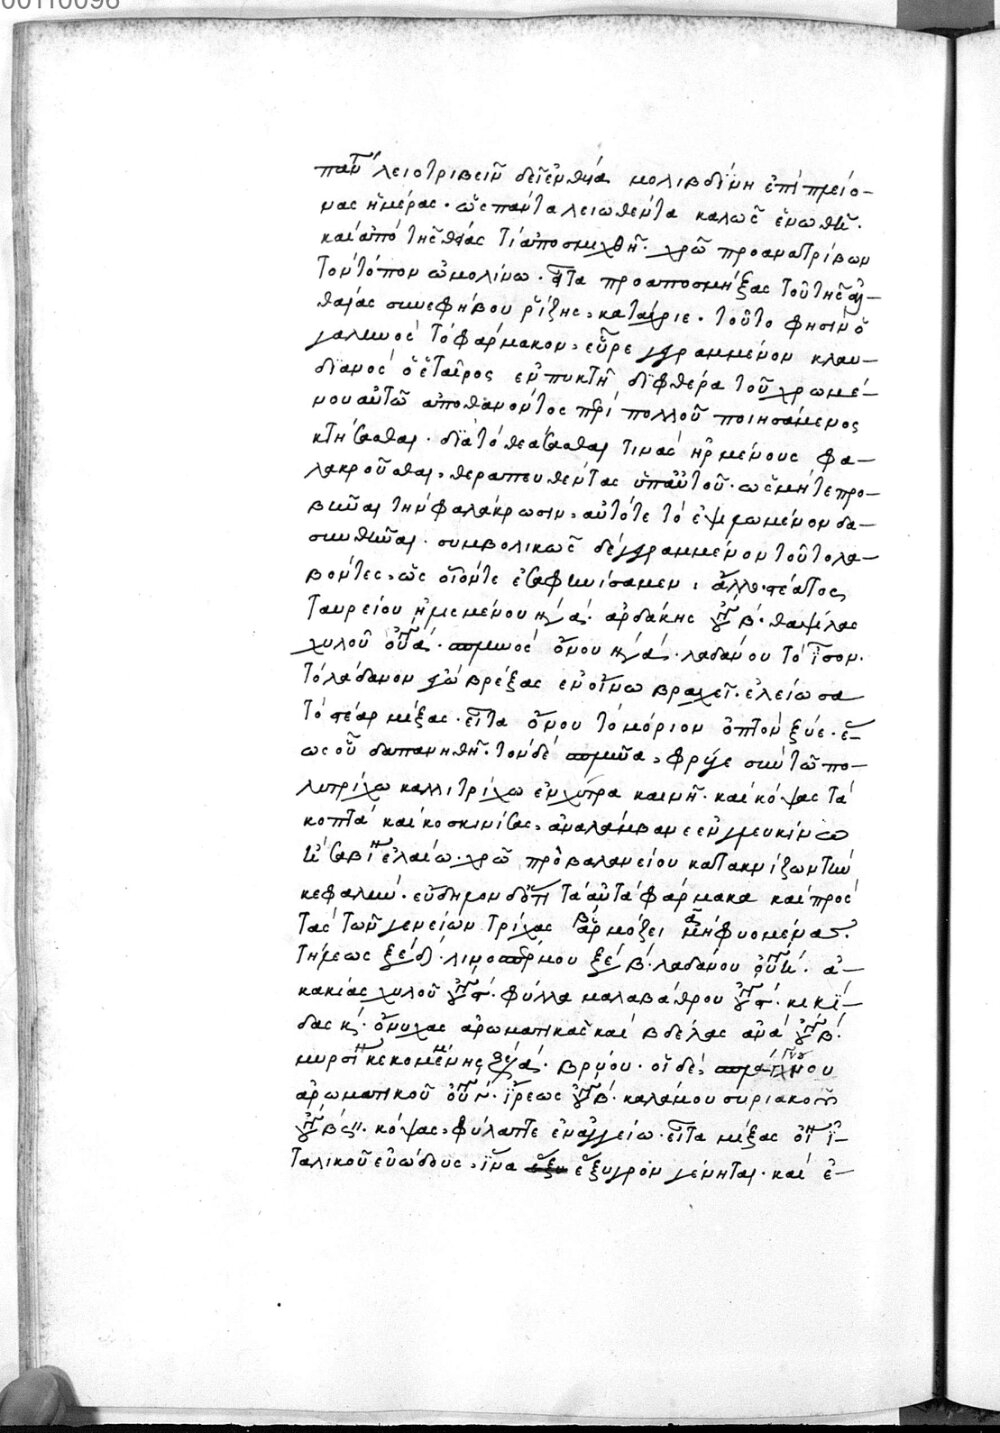 λειοτριβεῖν δεῖ ἐν θυία μολιβδίνη ἐπὶ πλείο-
νας ἡμέρας· ὡς πάντα λειωθέντα καλῶς ἑνωθῆ·
καὶ ἀπὸ τῆς θυίας τί ἀποσμιχθῆ· χρῶ προανατρίβων
τὸν τόπον ὠμολίνω· εἶτα προαποσμήξας τοῦ τῆς ἀλ-
θαίας συνεφήβου ῥίζης, καταχριε· τοῦτο φησὶν ὁ
γαληνὸς τὸ φάρμακον, εὗρε γεγραμμένον κλαυ-
διανὸς ὁ ἑταῖρος ἐν πυκτῆ διφθέρα τοῦ χρωμέ-
νου αὐτῶ ἀποθανόντος περὶ πολλοῦ ποιησάμενος
κτήσασθαι· διὰ τὸ θεάσασθαι τινὰς ἠργμένους φα-
λακροῦσθαι, θεραπευθέντας ὑπ' αὐτοῦ· ὡς μήτε προ-
βῆναι τὴν φαλάκρωσιν, αὐτότε τὸ ἐψιλωμένον δα-
συνθῆναι· συμβολικῶς δὲ γεγραμμένον τοῦτο λα-
βόντες, ὡς οἷόντε ἐσαφηνίσαμεν· ἄλλο· στέατος
ταυρείου ἡμεμένου α· ἀρδάκης β· θαψίας
χυλοῦ · ὄνου α· λαδάνου τὸ ἴσον·
τὸ λάδανον βρέξας ἐν οἴνω βραχεῖ· ἐλείωσα
τὸ στέαρ μίξας· εἶτα ὄνου τὸ μόριον ὀπτὸν ξύε· ἕ-
ως οὗ δαπανηθῆ· τὸν δὲ φρύγε σὺν τῶ πο-
λυτρίχω καλλιτρίχω ἐν χύτρα καινῆ· καὶ κόψας τὰ
κοπτὰ καὶ κοσκινίσας, ἀναλάμβανε ἐν γλευκίνω
ἢ σαβίνω ἐλαίω· χρῶ πρὸ βαλανείου κατακνίζων τὴν
κεφαλήν· εὔδηλον δ' ὅτι τὰ αὐτὰ φάρμακα καὶ πρὸς
τὰς τῶν γενείων τρίχας ἁρμόζει μὴ φυομένας·
τήλεως ξε δ· λινοσπέρμου ξε β· λαδάνου · ἀ-
κακίας χυλοῦ · φύλλα μαλαβάθρου · κηκί-
δας κ· ὄνυχας ἀρωματικὰς καὶ βδέλας ἀνὰ β·
μυρσίνης κεκομμένης α· βρύου· οἱ δὲ
ἀρωματικοῦ · ἴρεως β· καλάμου συριακοῦ
β· κόψας, φύλαττε ἐν ἀγγείω· εἶτα μίξας ἰ-
ταλικοῦ εὐώδους, ἵνα ἔξυγρον γένηται· καὶ ἐ-